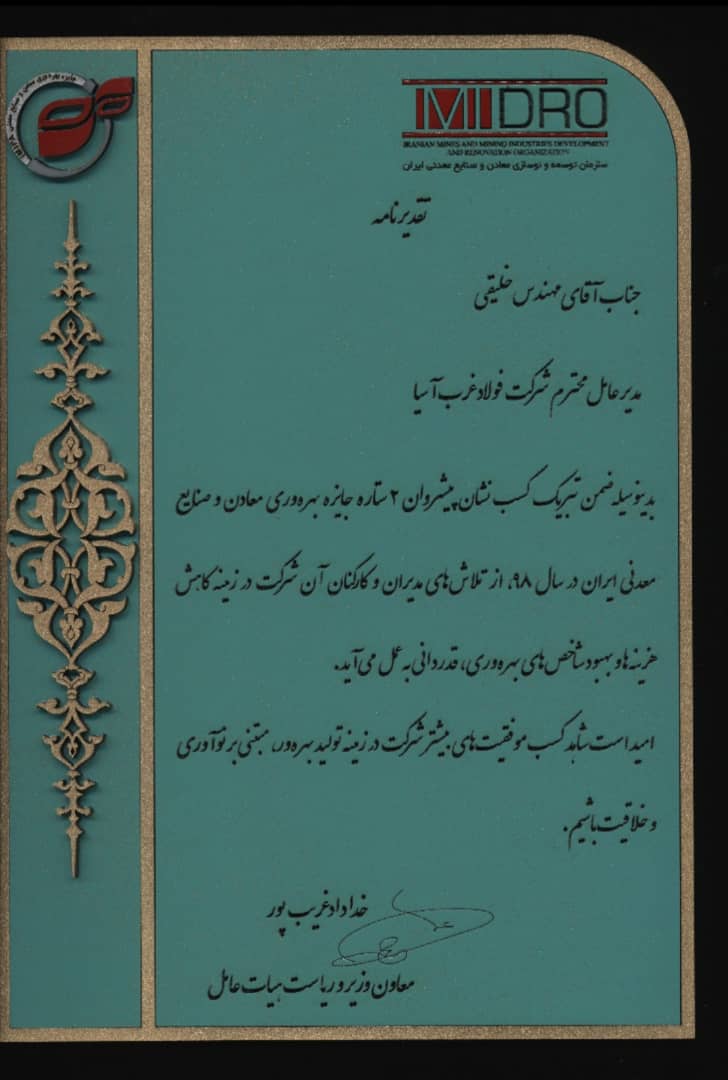 IMIDRO
IRANIAN MINES AND MINING INDUSTRIES DEVELOPMENT
AND RENOVATION ORGANIZATION
سازمان توسعه و نوسازی معادن و صنایع معدنی ایران
تقدیرنامه
جناب آقای مهندس خلیقی
مدیرعامل محترم شرکت فولاد غرب آسیا
بدینوسیله ضمن تبریک کسب نشان پیشروان ۲ ستاره جایزه بهره‌وری معادن و صنایع
معدنی ایران در سال ۹۸، از تلاش‌های مدیران و کارکنان آن شرکت در زمینه کاهش
هزینه‌ها و بهبود شاخص‌های بهره‌وری، قدردانی به عمل می‌آید.
امید است شاهد کسب موفقیت‌های بیشتر شرکت در زمینه تولید بهره‌ور، مبتنی بر نوآوری
و خلاقیت باشیم.
خداداد غریب پور
معاون وزیر و ریاست هیات عامل